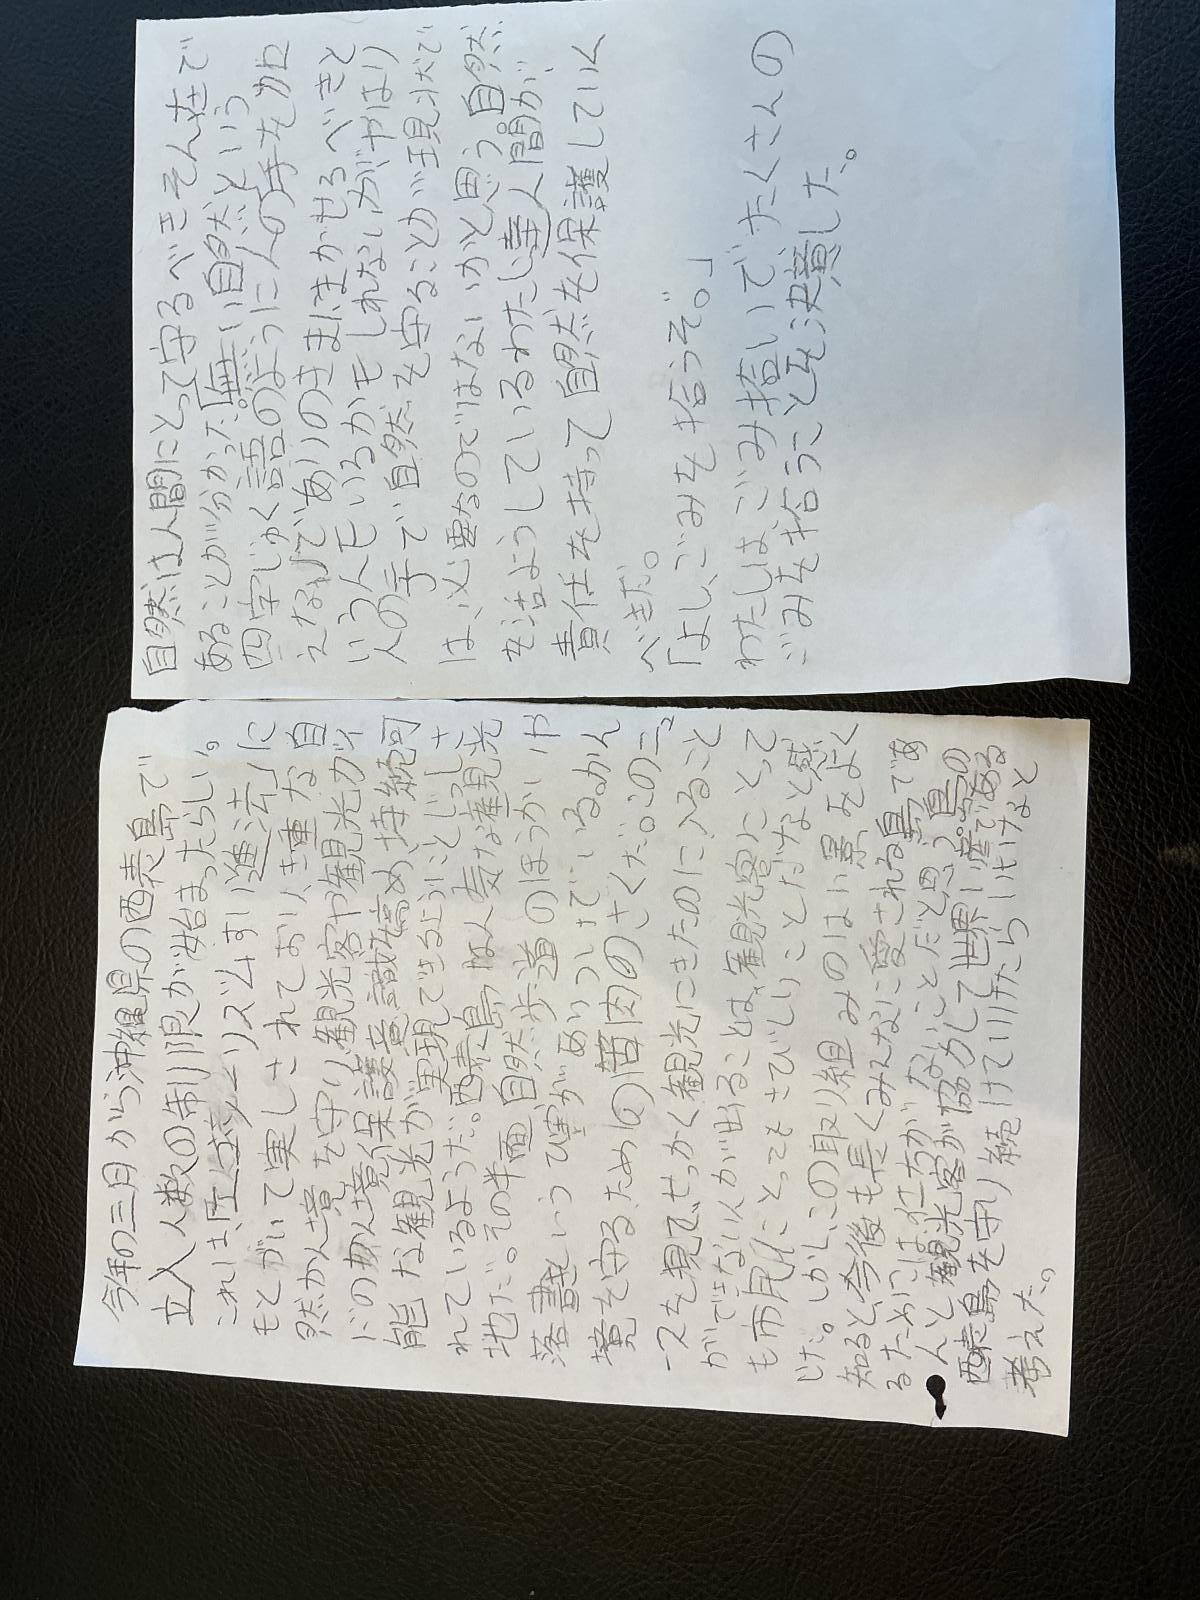 今年の三日から沖縄県の西表島で
立入人数の制限が始まったらしい。
これは、「エコツーリズムすい進法」に
もとづいて実しされており、き重な自
然かん境を守り、観光客や観光ガイ
ドのかん境保護意識を高め、持続可
能な観光が実現できるようにとじっしさ
れているようだ。西表島は人気な観光
地だ。その半面自然歩道のほうかいや
落書きというひ害があいついでいる。かん
境を守るための苦肉のさくだ。このニュ
ースを見て、せっかく観光にきたのに入ること
ができない人が出ることは、観光客にとって
も市民にとってもさびしいことだなと感
じた。しかし、この取り組みのはい景をよく
知ると、今後も長くみんなに愛される島であ
るためには仕方がないことだと思う。県の
人と観光客が協力して世界い産である
西表島を守り続けていけたらいいなと
考えた。
自然は人間にとって守るべきそん在で
あることが分かった。「無い自然という
四字じゅく語のように人の手をかロ
えない」でありのままにまかせるべきと
いう人もいるかもしれないがやはり
人の手で自然を守ることが現状で
は、必要なのではないかと思う。自然
を活ようしているわたし達人間が、
責任を持って自然を保護していく
べきだ。
「よし、ごみを拾うぞ。」
わたしはごみ拾いでたくさんの
ごみを拾うことを決意した。